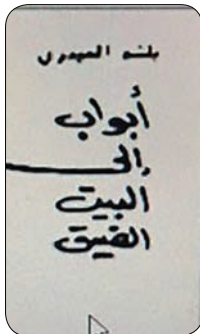 بلند الحيدري
أبواب
إلى
البيت
الضيق